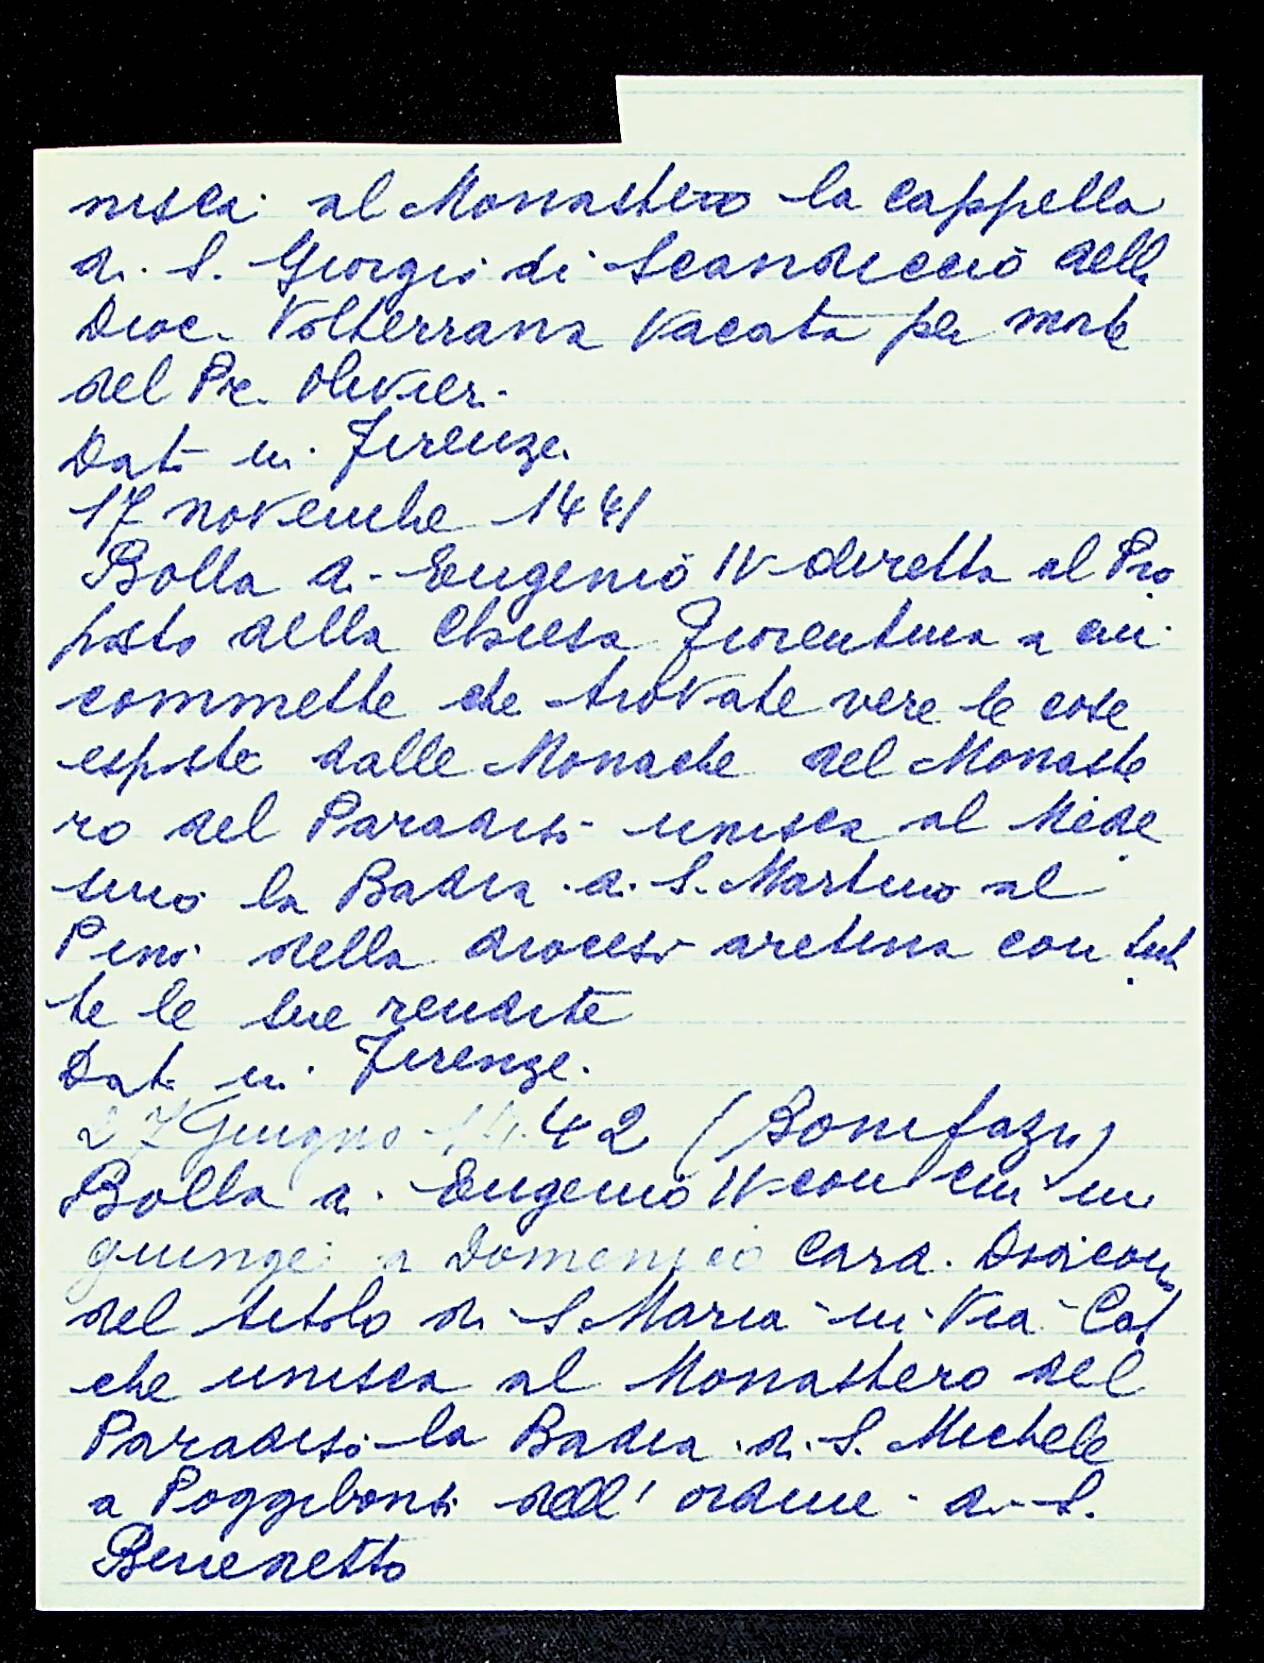 nisca al Monastero la cappella
di S. Giorgio di Scandiccio della
Dioc. Volterrana vacata per morte
del Pre. Olivier.
Dat. in Firenze.
17 novembre 1441
Bolla di Eugenio IV diretta al Pro
posto della Chiesa Fiorentina a cui
commette che trovate vere le cose
esposte dalle Monache del Monaste
ro del Paradiso unisca al Mede
simo la Badia di S. Martino al
Pino della diocesi aretina con tut
te le sue rendite
Dat. in Firenze.
27 Giugno 1442 (Bonifazio)
Bolla di Eugenio IV con cui in
giunge a Domenico Card. Diacono
del titolo di S. Maria in Via
che unisca al Monastero del
Paradiso la Badia di S. Michele
a Poggibonsi dell' ordine di S.
Benedetto